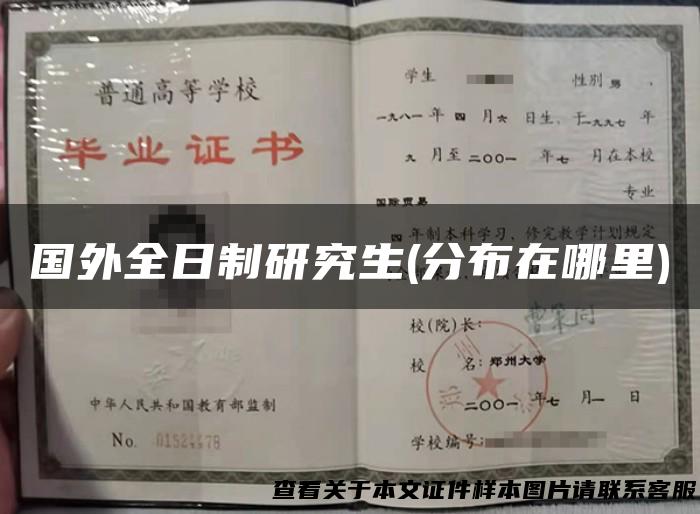 普通高等学校
毕业证书
中华人民共和国教育部监制
No. 01524478
学生 性别 男 ,
一九八一 年 四 月 六 日生, 于 一九九七 年
九 月至 二〇〇一 年 七 月在本校
国际贸易 专业
四 年制本科学习, 修完教学计划规定
国外全日制研究生(分布在哪里)
校(院)长:
校 名: 郑州大学
二〇〇一 年 七 月 一 日
学校编号:
查看关于本文证件样本图片请联系客服